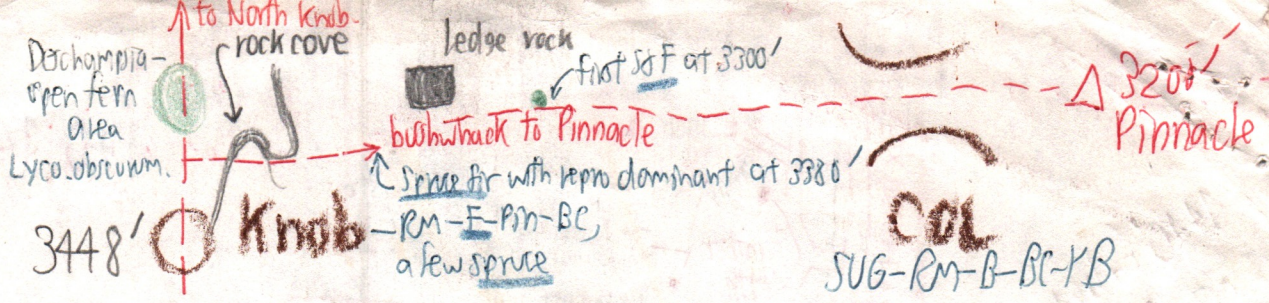 to North Knob
rock cove
Deschampia-
open fern
area
Lyco. obscurum.
ledge rock
first S&F at 3300'
bushwhack to Pinnacle
3200'
Pinnacle
Spruce fir with repro dominant at 3380'
3448'
Knob
-RM-F-Pin-BC,
a few spruce
COL
SUG-RM-B-BC-YB